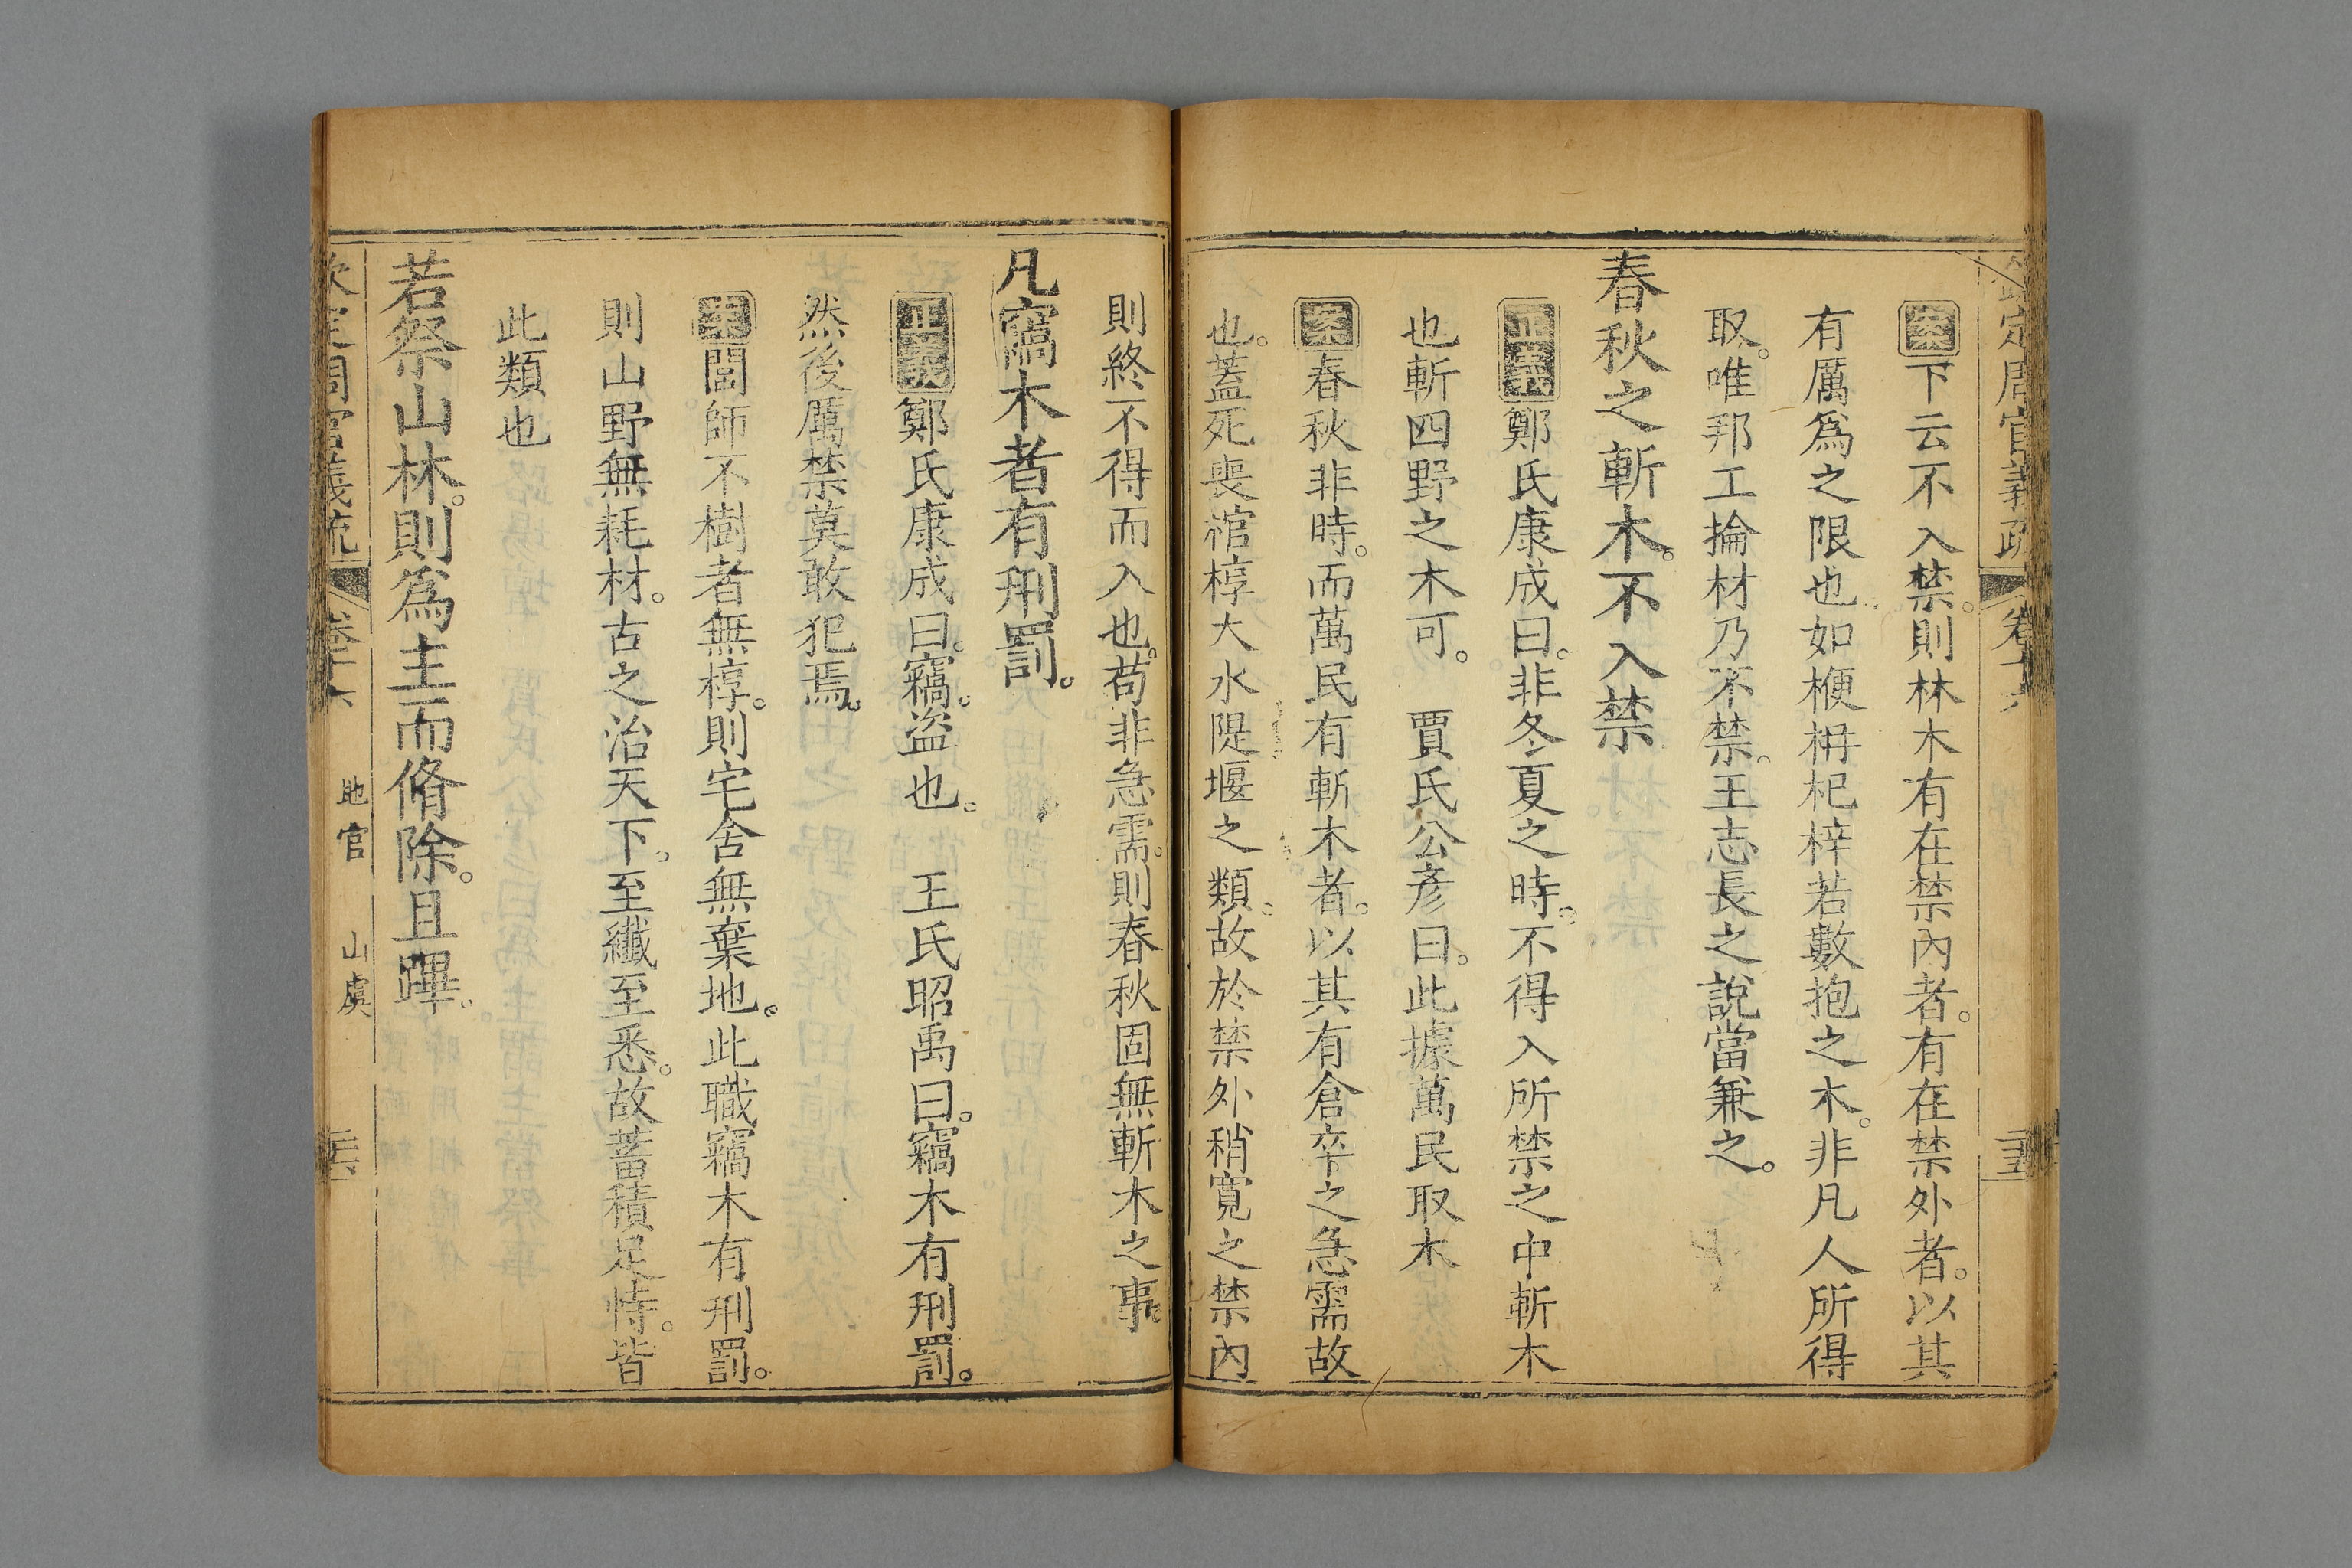 欽定周官義疏 卷十六 二十五
案下云不入禁。則林木有在禁內者。有在禁外者。以其
有厲爲之限也如楩枏杞梓若數抱之木。非凡人所得
取。唯邦工掄材乃不禁。王志長之說當兼之。
春秋之斬木。不入禁
正義鄭氏康成曰。非冬夏之時。不得入所禁之中斬木
也斬四野之木可。 賈氏公彥曰。此據萬民取木
案春秋非時。而萬民有斬木者。以其有倉卒之急需故
也。蓋死喪棺椁大水隄堰之類。故於禁外稍寬之禁內
則終不得而入也。苟非急需。則春秋固無斬木之事。
凡竊木者有刑罰。
正義鄭氏康成曰。竊。盜也。 王氏昭禹曰。竊木有刑罰。
然後厲禁莫敢犯焉。
案閭師不樹者無椁。則宅舍無棄地。此職竊木有刑罰。
則山野無耗材。古之治天下。至纖至悉。故蓄積足恃。皆
此類也
若祭山林。則爲主而脩除。且蹕。
欽定周官義疏 卷十六 地官 山虞